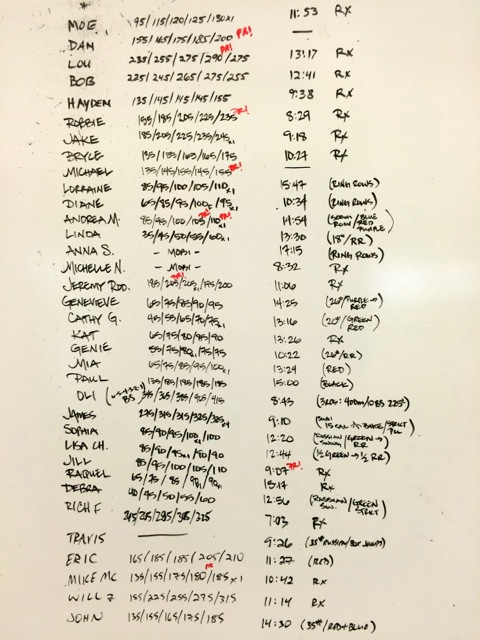 MOE 95/115/120/125/130x1 11:53 RX
DAN 155/165/175/185/200 PR! —
LOU 235/255/275/290/275 PR! 13:17 RX
BOB 225/245/265/275/255 12:41 RX
HAYDEN 135/145/145/145/155 9:38 RX
ROBBIE 155/185/205/225/235 PR! 8:29 RX
JAKE 185/205/225/235/245x1 9:18 RX
BRYCE 135/155/165/165/175 10:27 RX
MICHAEL 135/145/155/145/155 PR! —
LORRAINE 85/95/100/105/110x1 15:47 (RING ROWS)
DIANE 65/85/95/100x1/95x1 10:34 (RING ROWS)
ANDREA M. 85/95/100/105/110x1 PR! PR! 14:54 ROW/BLUE RED PURPLE)
LINDA 35/45/50/55/60x1 13:30 (18"/RR)
ANNA S. - MOBI - 17:15 (RING ROWS)
MICHELLE N. - MOBI - 8:32 RX
JEREMY ROD. 185/205/205x1/195/200 PR! 11:06 RX
GENEVIEVE 65/75/85/90/95 14:25 (26#/PURPLE→RED)
CATHY G. 45/55/65/70/75x1 13:16 (20#/GREEN RED)
KAT 65/75/80/85/90 13:26 RX
GENIE 55/75/80x1/75/75 10:22 (26#/RR)
MIA 65/75/85/95/100x1 13:24 (RED)
PAUL 135/185/195/185/185 15:00 (BLACK)
OLI 315/365/385/405/415 8:43
JAMES 275/315/315/325/325x4 9:10
SOPHIA 85/90/95/100x1/100 12:20 (RUSSIAN/GREEN→ SWING RR
LISA CH. 85/90/95x1/90/90 12:44 (½ GREEN→½ RR)
JILL 85/95/100/105/110 9:07 PR! RX
RAQUEL 65/75/85/90x1/90x1 15:17 RX
DEBRA 40/45/50/55/60 12:56 (RUSSIAN/GREEN SW.
RICH F 245/265/285/305/325 7:03 RX
TRAVIS — 9:26 (35# RUSSIAN/BOX JUMPS)
ERIC 165/185/185/205/210 11:27 (RED)
MIKE MC 135/155/175/180/185x1 PR 10:42 RX
WILL Z 155/225/255/275/315 11:14 RX
JOHN 135/155/165/175/185 14:30 (35#/RED+BLUE)